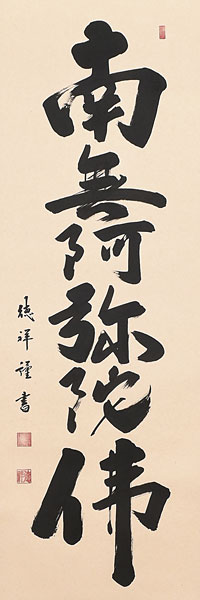 南無阿弥陀佛
穂祥謹書